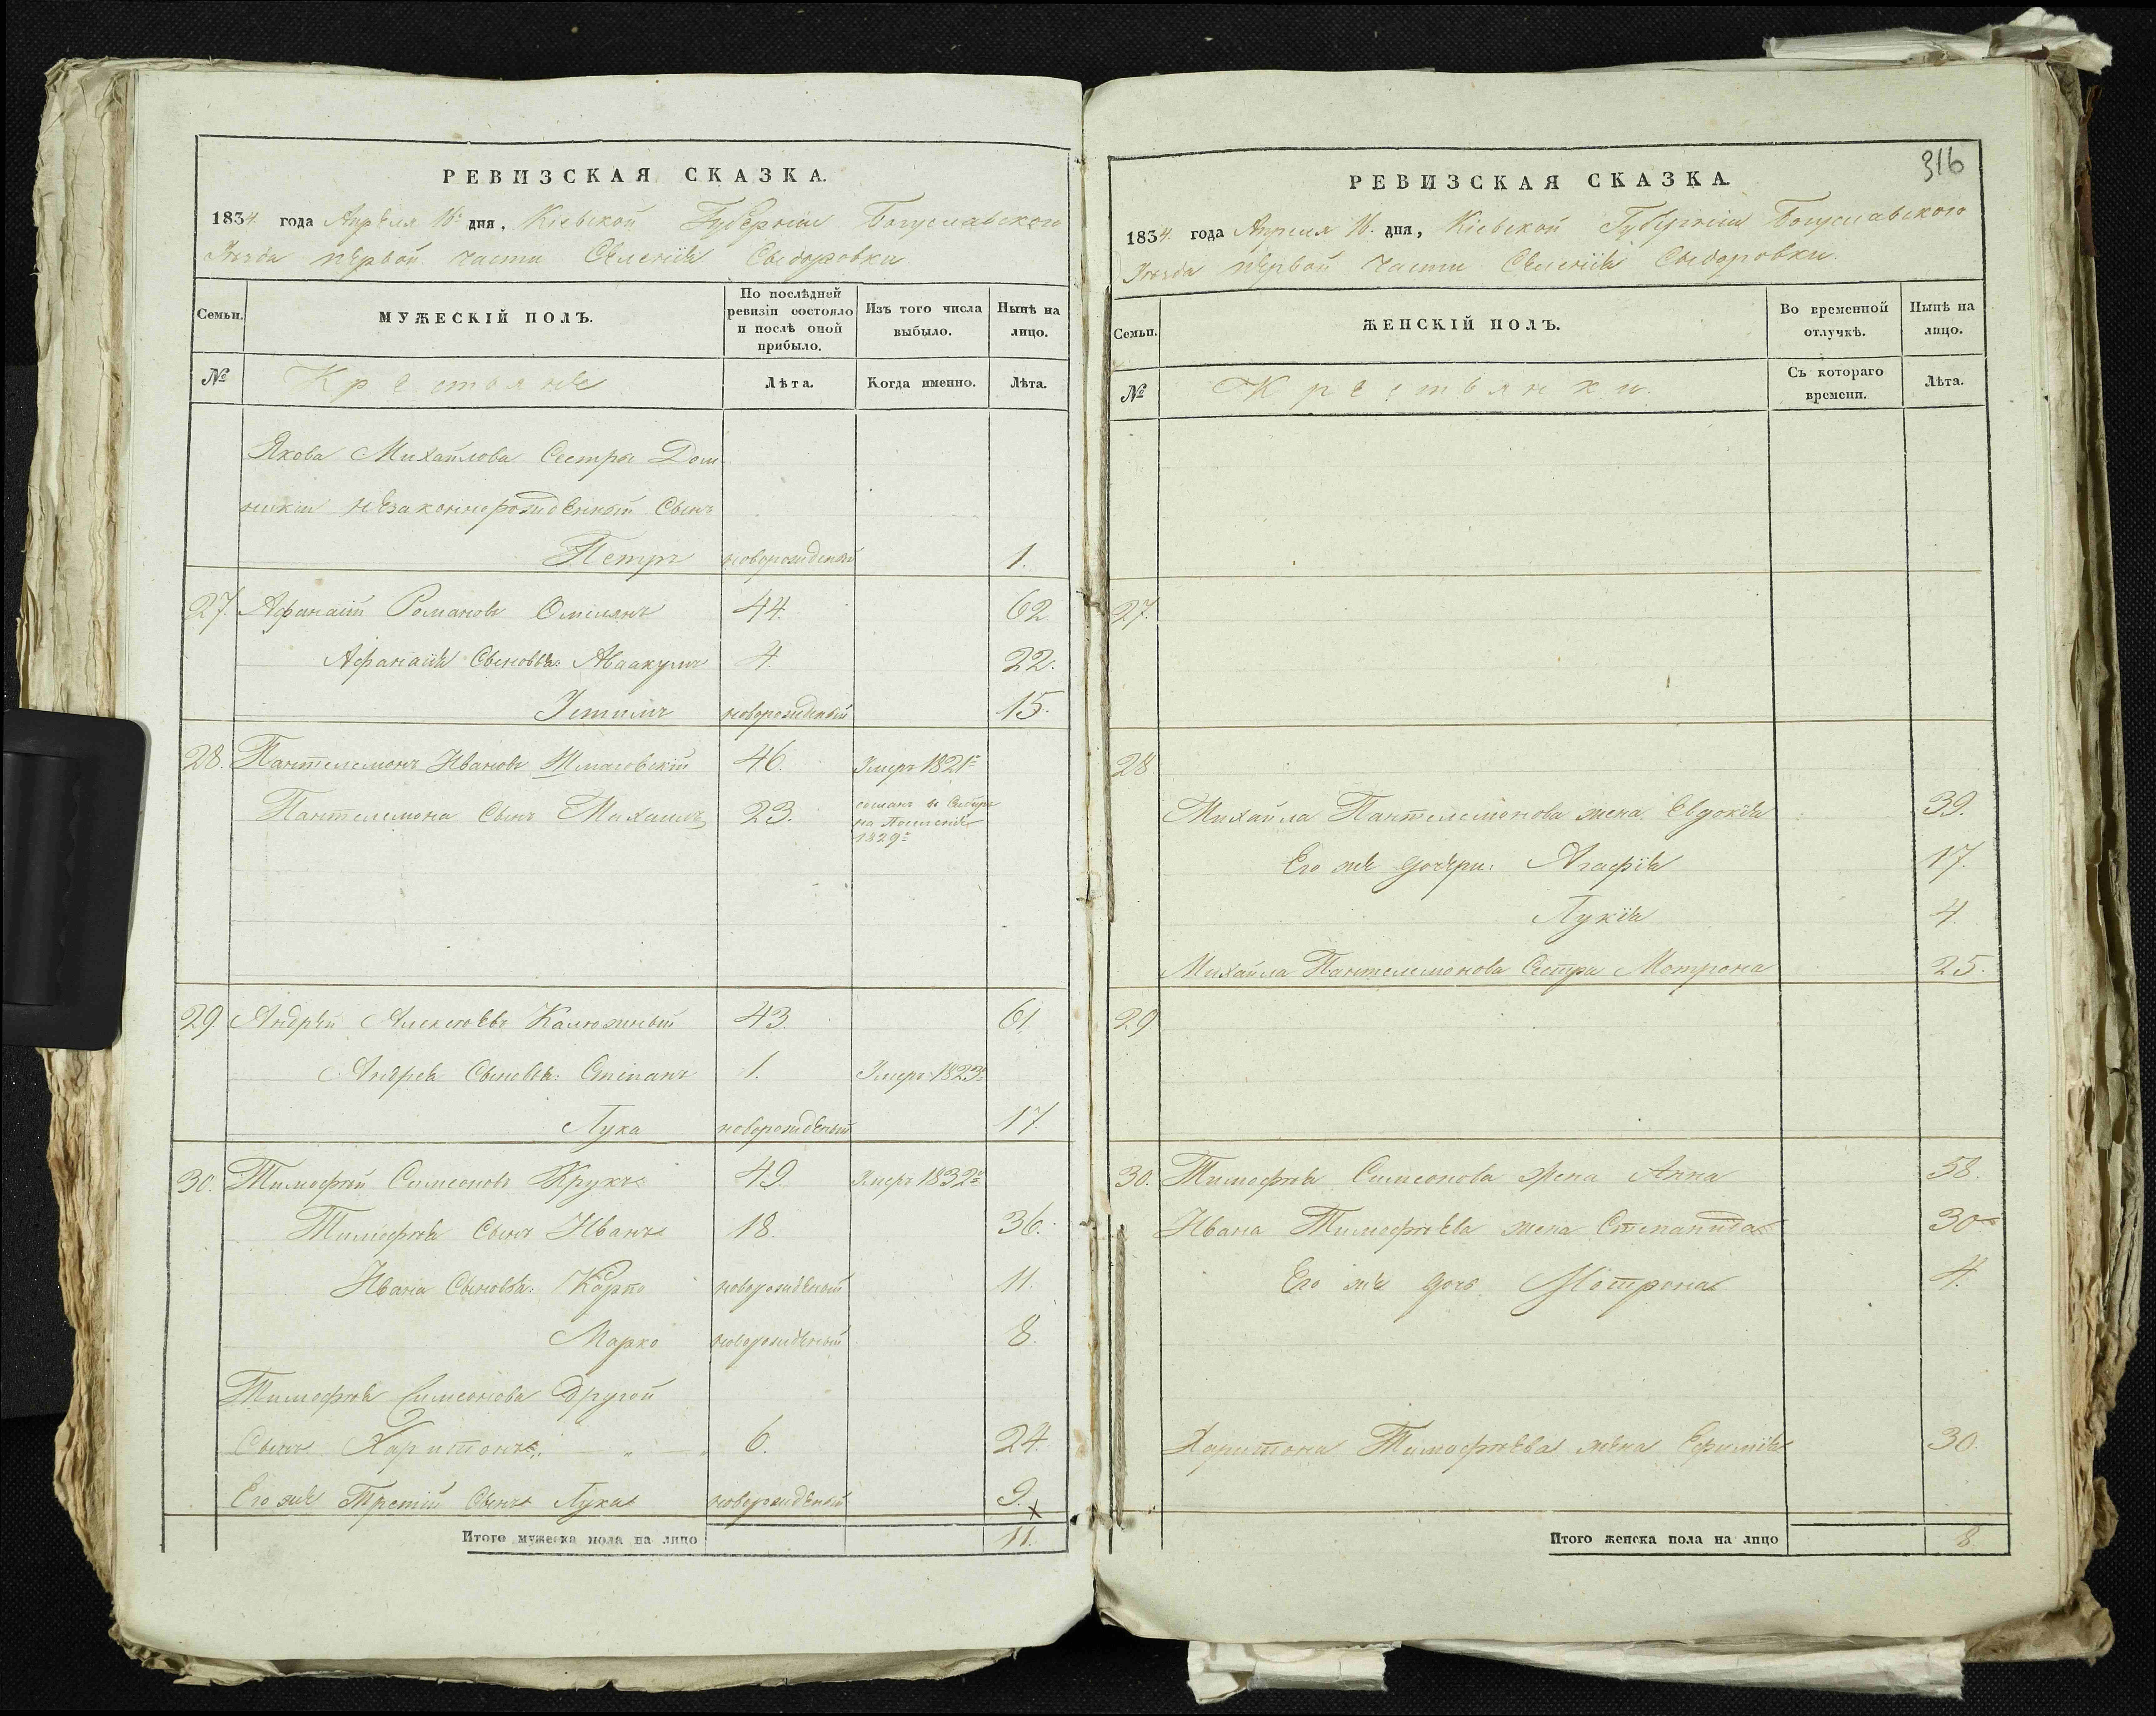 РЕВИЗСКАЯ СКАЗКА.
1834 года Апрѣля 16го дня, Кіевской Губерніи Богуславского
Уѣзда первой части Селенія Сыдоровки
Семьи.
МУЖЕСКІЙ ПОЛЪ.
По послѣдней ревизіи состояло и послѣ оной прибыло.
Изъ того числа выбыло.
Нынѣ на лицо.
№
Крестьяне
Лѣта.
Когда именно.
Лѣта.
Якова Михайлова Сестры Дом-
никіи незаконнорожденный Сынъ
Петръ новорожденый 1.
27. Афанасій Романовъ Омелянъ 44. 62.
Афанасія Сыновья: Аввакумъ 4. 22.
Устимъ новорожденый 15.
28. Пантелемонъ Ивановъ 46. Умеръ 1821го
Пантелемона Сынъ Михаилъ 23. сосланъ въ Сибирь
на Поселеніе
1829го
29 Андрей Алексѣевъ Калюжный 43. 61.
Андрея Сыновья: Степанъ 1. Умеръ 1823го
Лука новорожденый 17.
30. Тимофѣй Симеоновъ Крукъ 49. Умеръ 1832го
Тимофѣя Сынъ Иванъ 18. 36.
Ивана Сыновья: Карпо новорожденый 11.
Марко новорожденый 8.
Тимофѣя Симеонова другой
Сынъ Харитонъ 6. 24.
Его же Третій Сынъ Лука новорожденый 9.
Итого мужеска пола на лицо 11.
316
РЕВИЗСКАЯ СКАЗКА
1834. года Апреля 16. дня, Кіевской Губерніи Богуславского
Уѣзда первой части Селенія Сыдоровки.
Семьи.
ЖЕНСКІЙ ПОЛЪ.
Во временной отлучкѣ.
Нынѣ на лицо.
№
Крестьянки.
Съ котораго времени.
Лѣта.
27.
28.
Михайла Пантелемонова жена Евдокія 39.
Его же дочери: Агафія 17.
Лукія 4.
Михайла Пантелемонова Сестра Мотрона 25.
29
30. Тимофѣя Симеонова жена Анна 58.
Ивана Тимофѣева жена Степанида 30
Его же дочь Мотрона 4.
Харитона Тимофѣева жена Ефимія 30.
Итого женска пола на лицо 8